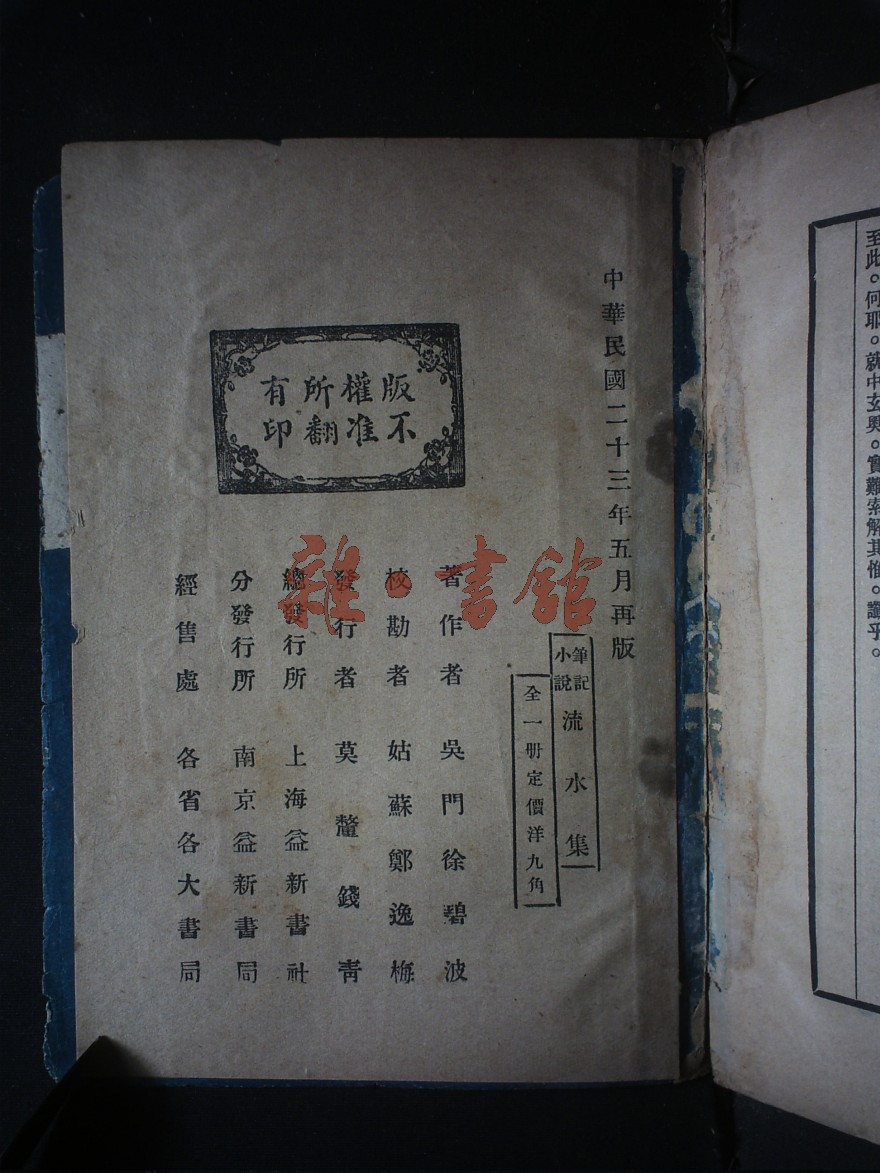 至此。何耶。就中玄奧。實難索解其惟。讀乎。
中華民國二十三年五月再版
筆記
小說
流水集
全一册定價洋九角
版權所有
不准翻印
著作者 吳門徐碧波
校勘者 姑蘇鄭逸梅
發行者 莫釐錢青
總發行所 上海益新書社
分發行所 南京益新書局
經售處 各省各大書局
雜·書館